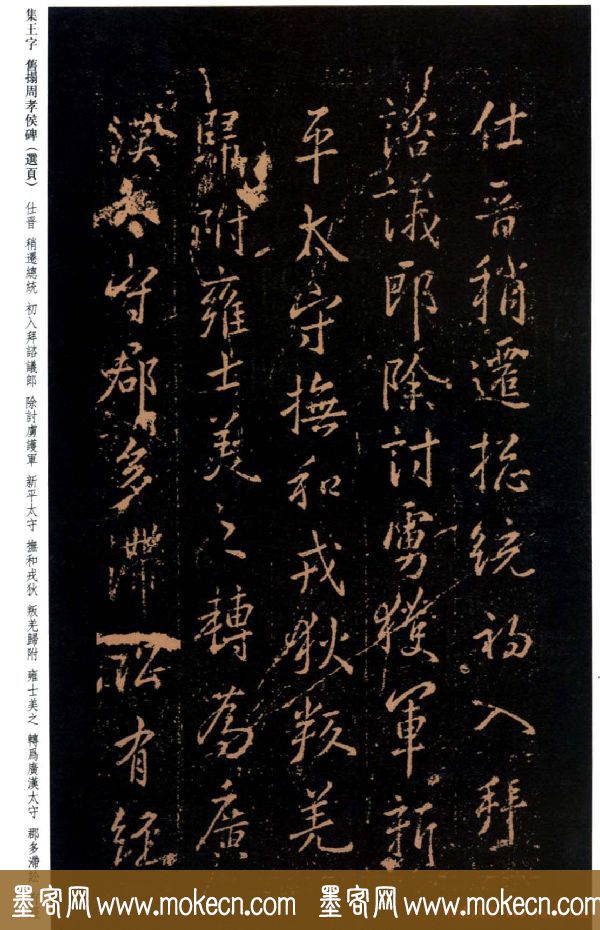 集王字 舊搨周孝侯碑（選頁） 仕晋 稍遷總統 初入拜諮議郎 除討虜護軍 新平太守 撫和戎狄 叛羌歸附 雍士美之 轉爲廣漢太守 郡多滯訟
仕晋稍遷揔統初入拜
諮議郎除討虜護軍新
平太守撫和戎狄叛羌
歸附雍士美之轉為廣
漢太守郡多滯訟有經
墨客网 www.mokecn.com 墨客网 www.mokecn.com